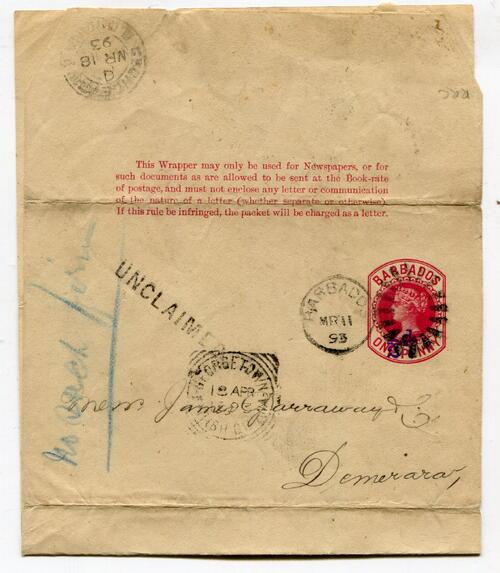 MR 18
93
This Wrapper may only be used for Newspapers, or for
such documents as are allowed to be sent at the Book-rate
of postage, and must not enclose any letter or communication
of the nature of a letter (whether separate or otherwise).
If this rule be infringed, the packet will be charged as a letter.
No such firm
UNCLAIMED
BARBADOS
MR 11
93
BARBADOS
ONE PENNY
GEORGETOWN
12 APR
James Garraway & Co
Demerara,